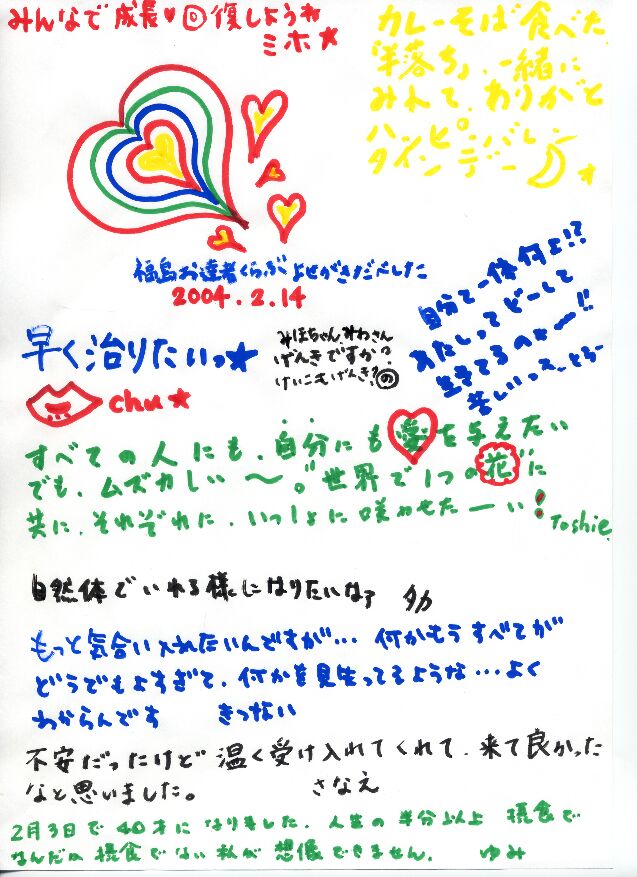 みんなで成長♥回復しようね
ミホ★
カレーそば食べた
「半落ち」、一緒に
みれて、ありがと
ハッピーバレンタインデー
福島お達者くらぶ よせがきだべした
2004.2.14
自分て一体何よ!?
あたしってどーして
生きてるのかなー!!
苦しいっス、
早く治りたいっ★
みほちゃん みわさん
げんきですか?
けいこもげんき? の
chu★
すべての人にも、自分にも愛を与えたい
でも、ムズカしい～。"世界で1つの花"に
共に、それぞれに、いっしょに咲かせたーい!
Toshie
自然体でいれる様になりたいなァ タカ
もっと気合い入れたいんですが… 何かもうすべてが
どうでもよすぎて、何かを見失ってるような…よく
わからんです きっない
不安だったけど 温く受け入れてくれて、来て良かった
なと思いました。 さなえ
2月3日で40才になりました。人生の半分以上 摂食で
なんだか摂食でない私が 想像できません。 ゆみ